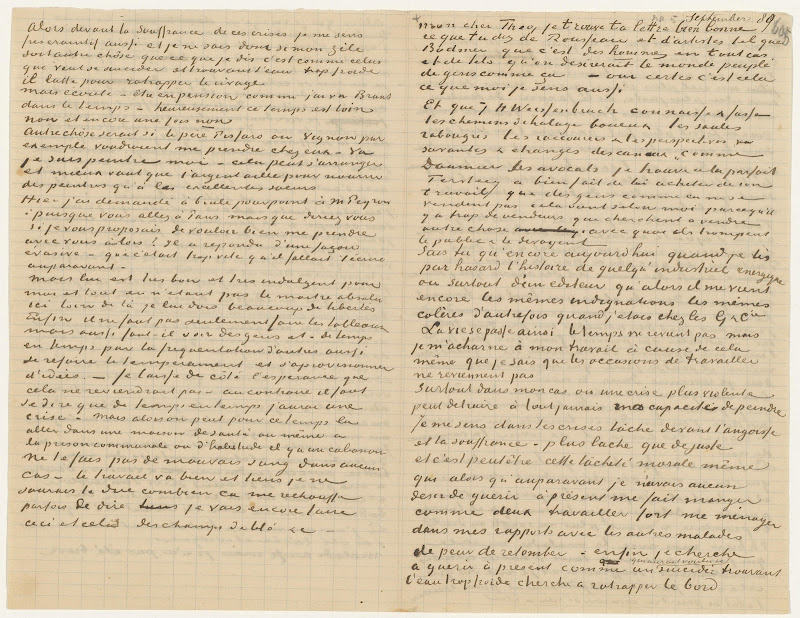 Alors devant la souffrance de ces crises je me sens
peureux aussi et je ne sais donc si mon zèle
soit autre chose que ce que je dis c'est comme celui
que veut se suicider et trouvant l'eau trop froide
il lutte pour ratrapper le rivage.
mais ecoute – être en pension comme j'ai vu Braat
dans le temps – heureusement ce temps est loin
non et encore une fois non
Autre chose serait si le père Pissaro ou Vignon par
exemple voudraient me prendre chez eux – va
je suis peintre moi – cela peut s'arranger
et mieux vaut que l'argent aille pour nourrir
des peintres qu'à les excellentes soeurs
Hier j'ai demandé à brule pour point à M Peyron
: puisque vous allez à Paris mais que diriez vous
si je vous proposais de vouloir bien me prendre
avec vous alors? Il a repondu d'une façon
evasive – que c'etait trop vite qu'il fallait t'ecrire
auparavant –
Mais lui est tres bon et tres indulgent pour
moi et tout en n'etant pas le maitre absolu
ici loin de là je lui dois beaucoup de libertés
Enfin il ne faut pas seulement faire les tableaux
mais aussi faut-il voir des gens et – de temps
en temps par la frequentation d'autres aussi
se refaire le temperament et s'aprovisionner
d'idées – Je laisse de côté l'esperance que
cela ne reviendrait pas – au contraire il faut
se dire que de temps en temps j'aurai une
crise – Mais alors on peut pour ce temps là
aller dans une maison de santé ou même à
la prison communale où d'habitude il y a un cabanon
Ne te fais pas de mauvais sang dans aucun
cas – le travail va bien et tiens je ne
saurais te dire combien ça me rechauffe
parfois de dire je vais encore faire
ceci et cela des champs de blé &c –
September 89
605
mon cher Theo, je trouve ta lettre bien bonne
ce que tu dis de Rousseau et d'artistes tel que
Bodmer que c'est des hommes en tout cas
et de tels qu'on desirerait le monde peuplé
de gens comme ça – – oui certes c'est cela
ce que moi je sens aussi
Et que J H Weissenbruch connaisse & fasse
les chemins de halage boueux les saules
rabougris les raccourcis & les perspectives
savantes & etranges des canaux, comme
Daumier les avocats je trouve cela parfait
Tersteeg a bien fait de lui acheter de son
travail que des gens comme ça ne se
vendent pas cela vient selon moi parcequ'il
y a trop de vendeurs qui cherchent à vendre
autre chose avec quoi ils trompent
le public & le devoyent
Sais tu qu'encore aujourd'hui quand je lis
par hasard l'histoire de quelqu'industriel energique
ou surtout d'un editeur qu'alors il me vient
encore les mêmes indignations les mêmes
colères d'autrefois quand j'etais chez les G & Cie
La vie se passe ainsi le temps ne revient pas mais
je m'acharne à mon travail à cause de cela
même que je sais que les occasions de travailler
ne reviennent pas
Surtout dans mon cas où une crise plus violente
peut detruire à tout jamais ma capacité de peindre
Je me sens dans les crises lâche devant l'angoisse
et la souffrance – plus lache que de juste
et c'est peutêtre cette lâcheté morale même
qui alors qu'auparavant je n'avais aucun
desir de guerir à présent me fait manger
comme deux travailler fort me ménager
dans mes rapports avec les autres malades
de peur de retomber – enfin je cherche
à guerir à present comme un qui aurait voulu se suicider trouvant
l'eau trop froide cherche à ratrapper le bord